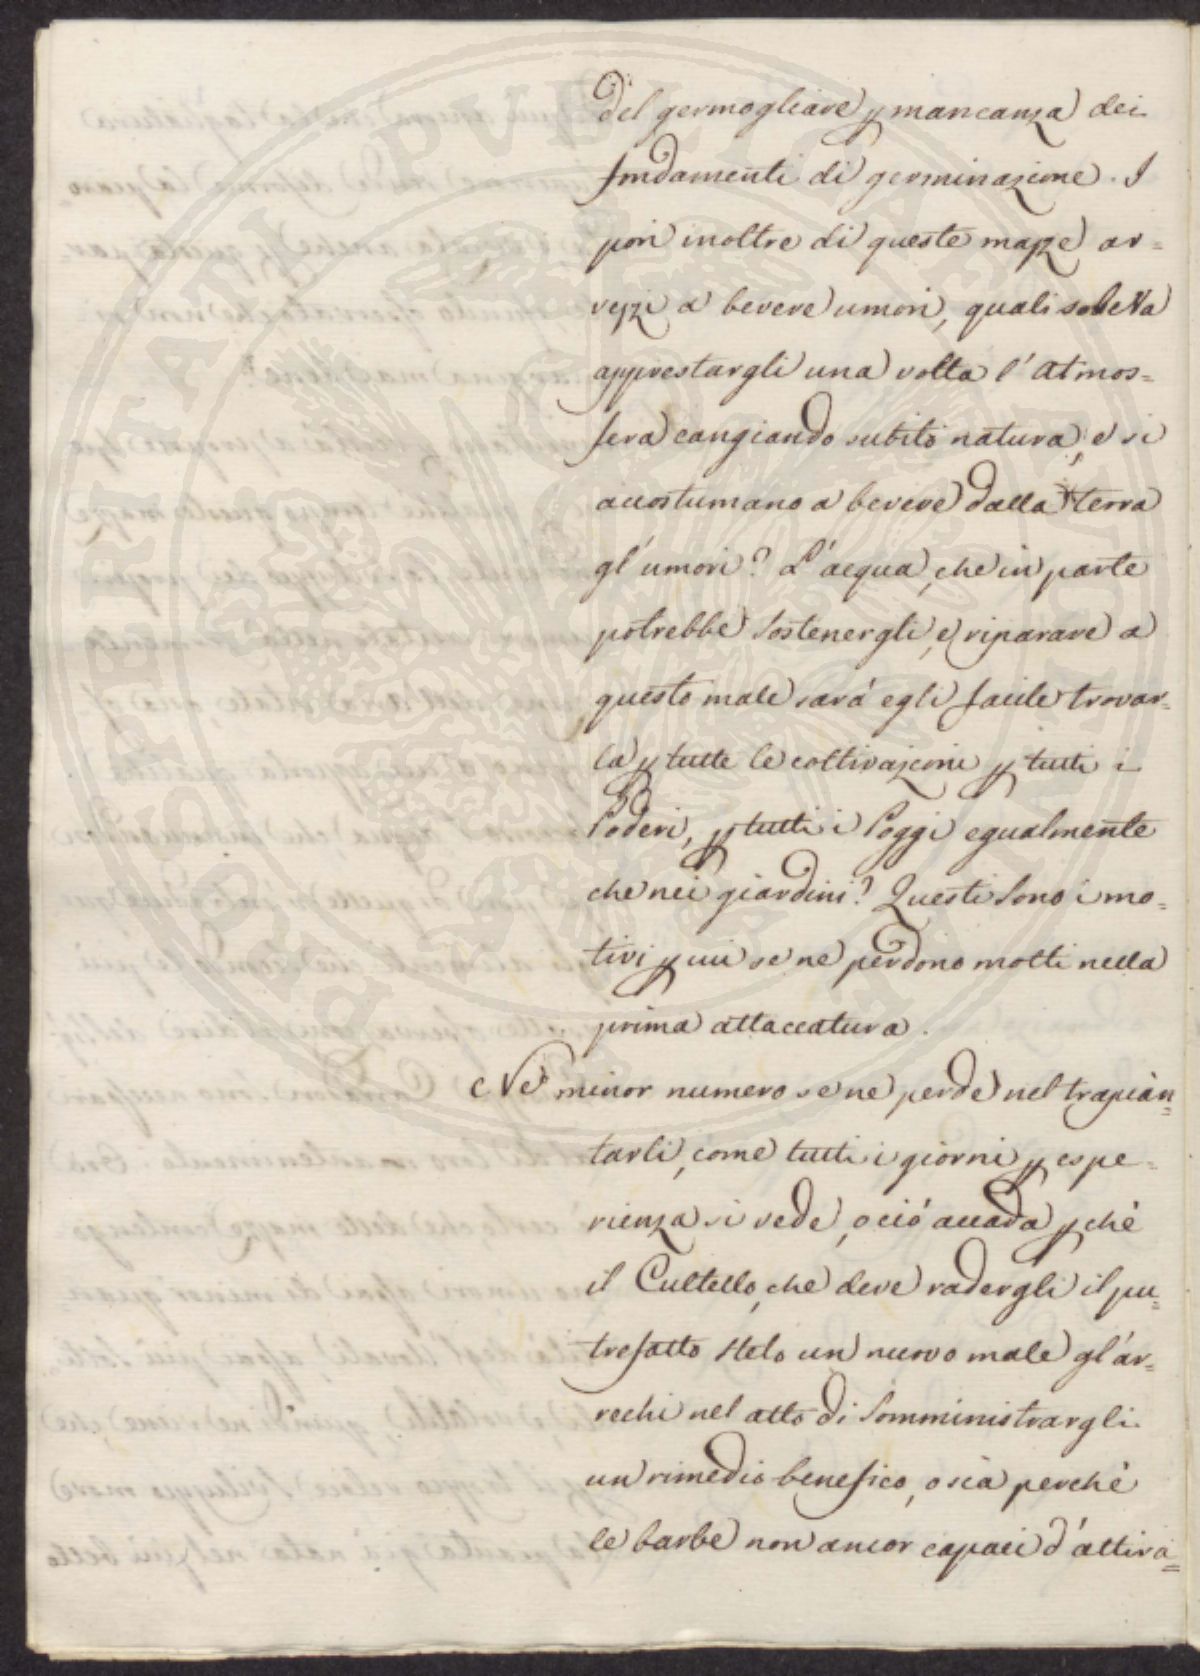 del germogliare p mancanza dei
fondamenti di germinazione. I
pori inoltre di queste mazze av=
vezzi a bevere umori, quali soleva
apprestargli una volta l'atmos=
fera cangiando subito natura, e si
accostumano a bevere dalla terra
gl'umori? L'acqua, che in parte
potrebbe sostenergli, e riparare a
questo male sarà egli facile trovar=
la p tutte le coltivazioni p tutti i
Poderi, p tutti i Poggi egualmente
che nei giardini? Questi sono i mo=
tivi p cui se ne perdono molti nella
prima attaccatura.
Nè minor numero se ne perde nel trapian=
tarli, come tutti i giorni p espe=
rienza si vede, o ciò accada p chè
il Cultello, che deve radergli il pu=
trefatto stelo un nuovo male gl'ar=
rechi nel atto di somministrargli
un rimedio benefico, o sia perchè
le barbe non ancor capaci d'attira=
PROSPERITATI PVBLICAE